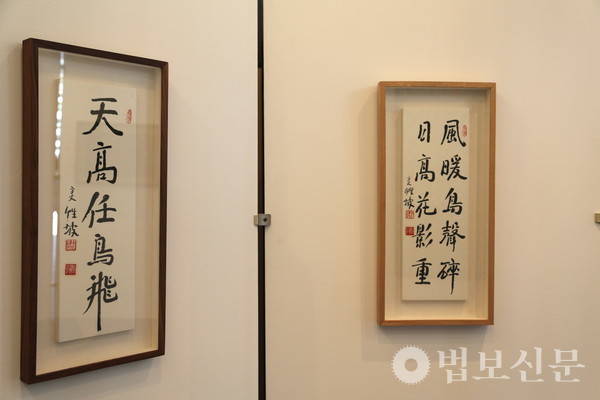 天高任鳥飛
性坡
風暖鳥聲碎
日高花影重
性坡
법보신문